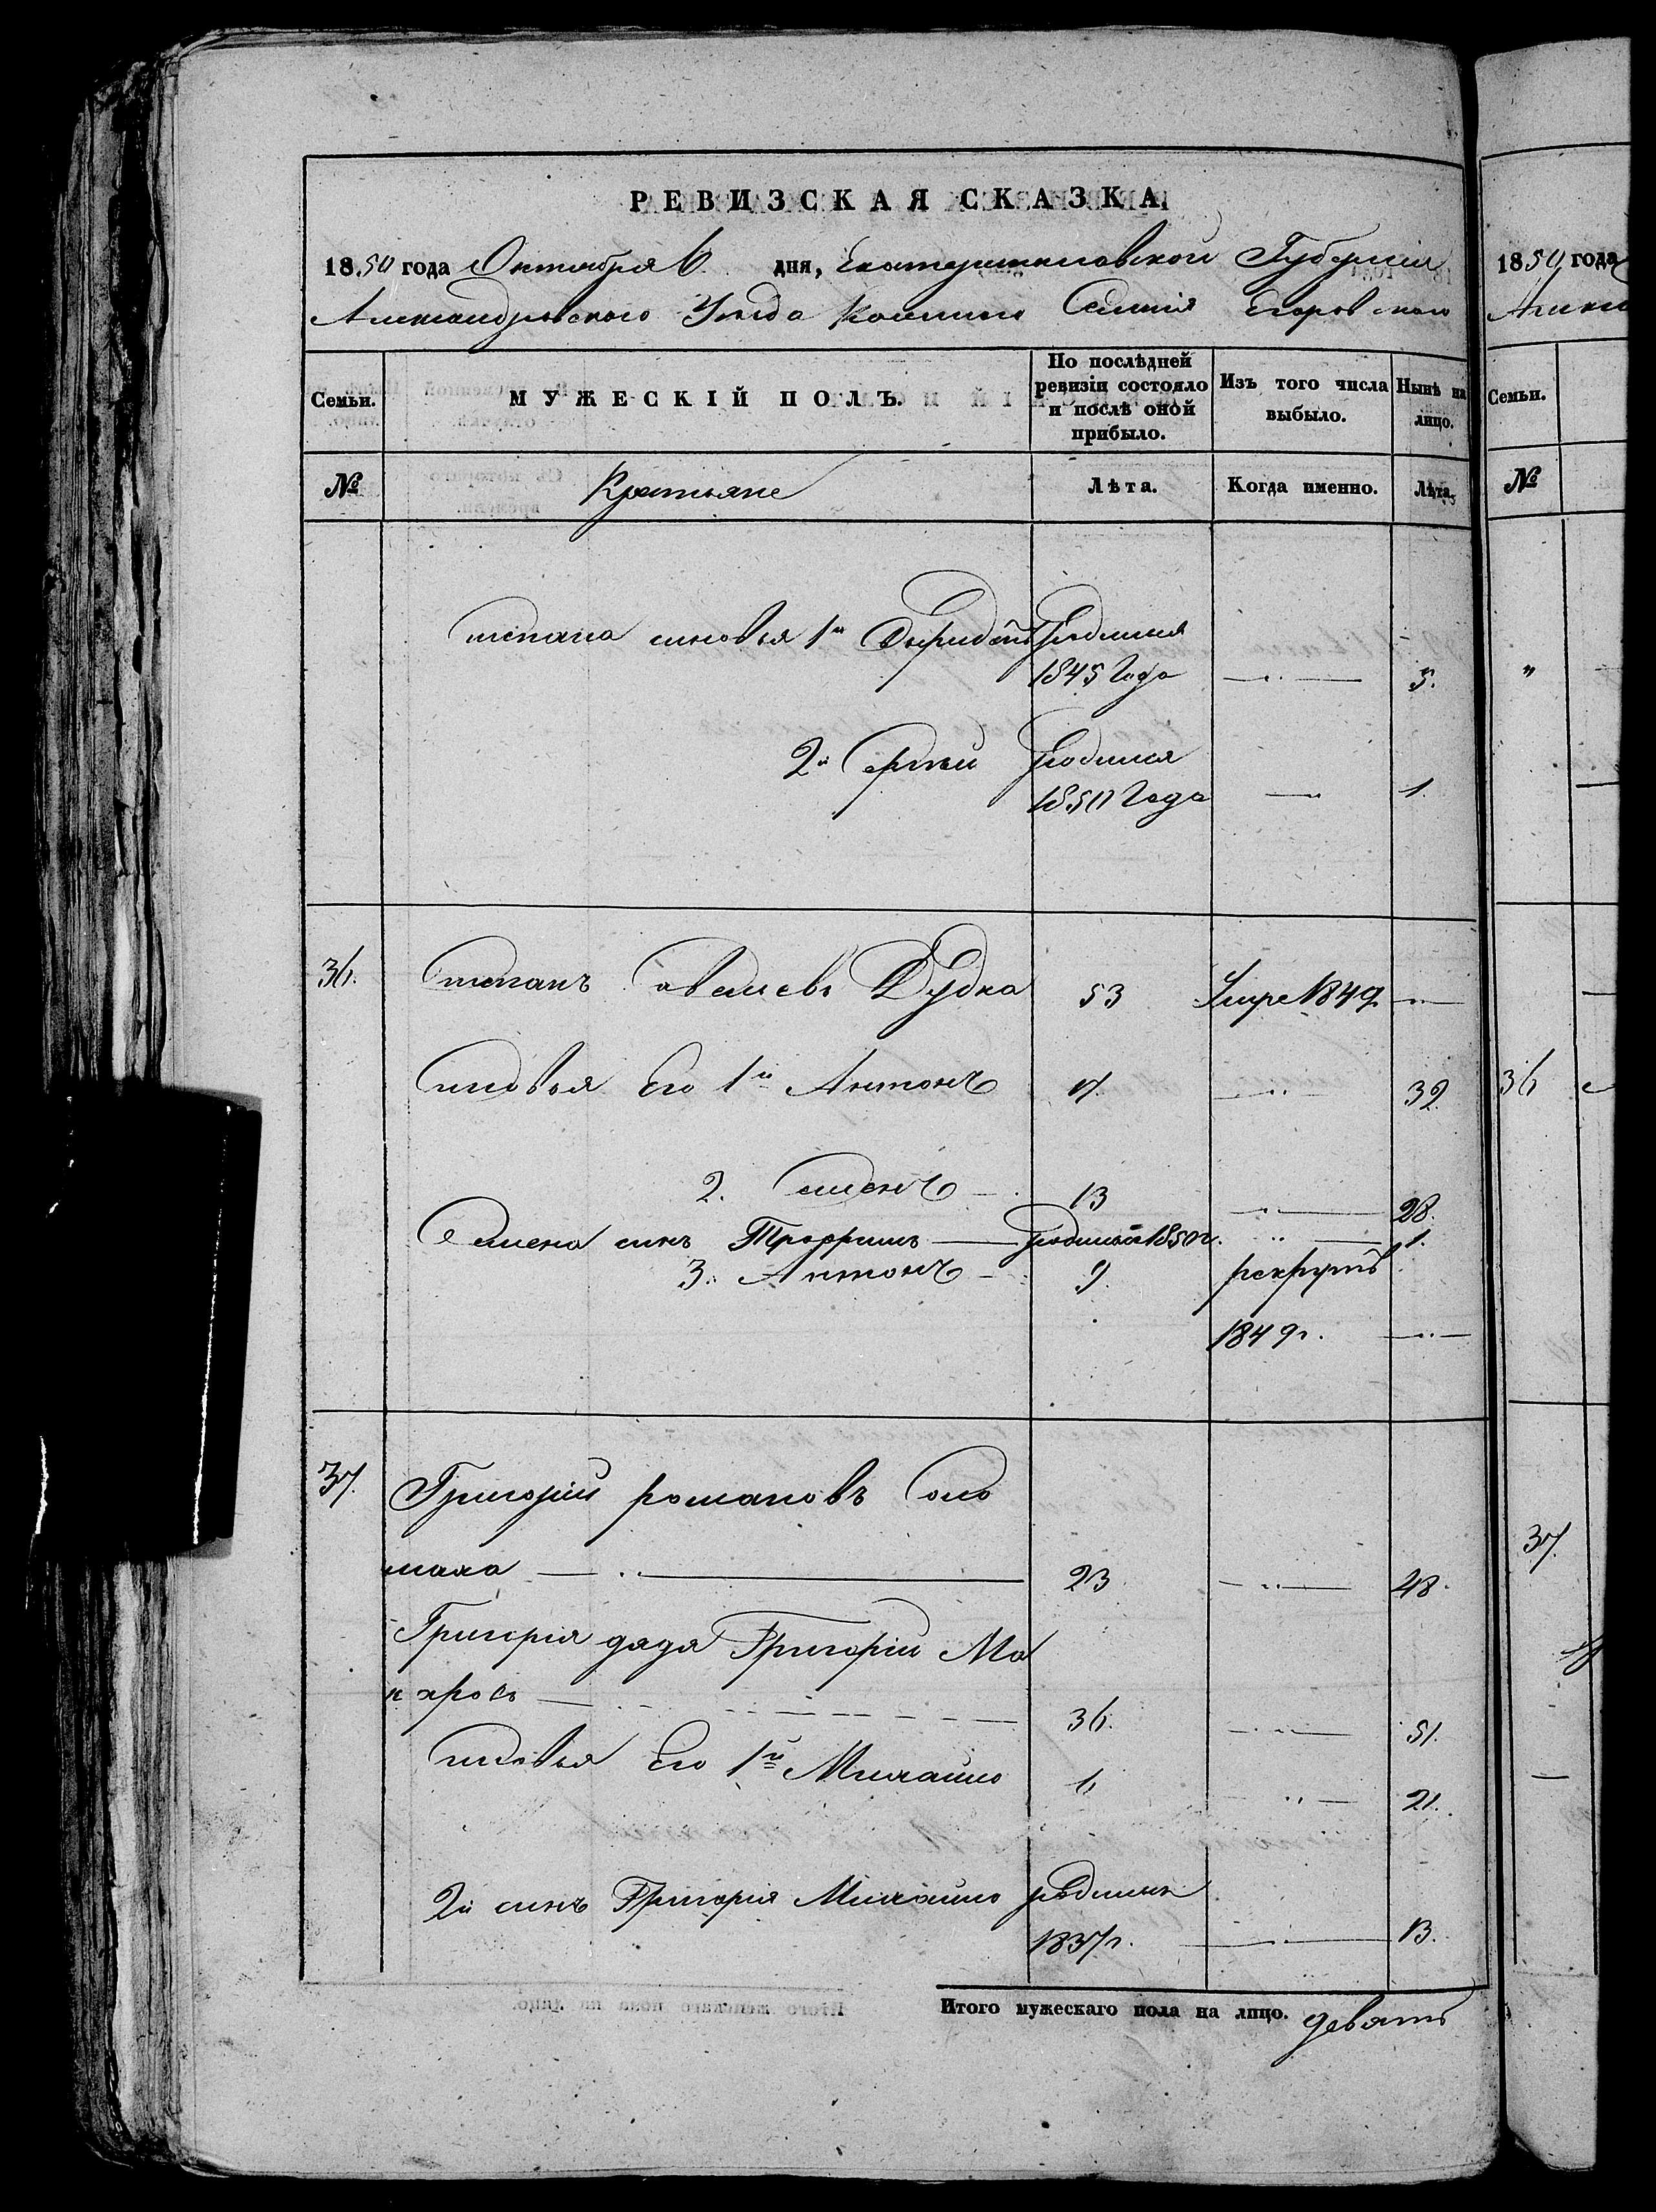 РЕВИЗСКАЯ СКАЗКА
1850 года Октября 6 дня, Екатеринославской Губернии
Александровского Уезда Казенного Селения Егоровского
Семьи.
МУЖЕСКІЙ ПОЛЪ.
По послѣдней ревизіи состояло и послѣ оной прибыло.
Изъ того числа выбыло.
Нынѣ на лицо.
№
Крестьяне
Лѣта.
Когда именно.
Лѣта.
степана сыновья 1й родился
1845 Года 5.
2й Сергѣй родился
1850 Года 1.
36. степанъ Дудка 53 Умре 1849
сыновья Его 1й Антонъ 17. 32.
2. семенъ 13 28.
Семена сынъ Трофимъ родился 1850г. 1.
3. Антонъ 9. рекрутъ
1849г.
37. Григорій романовъ Соло
маха 23 48.
Григорія дядя Григорій Ма
каровъ 36. 51.
сыновья Его 1й Михайло 6 21.
2й сынъ Григорія Михайло родился
1837г. 13.
Итого мужескаго пола на лицо. девять
1850 года
Семьи.
№
36
37.